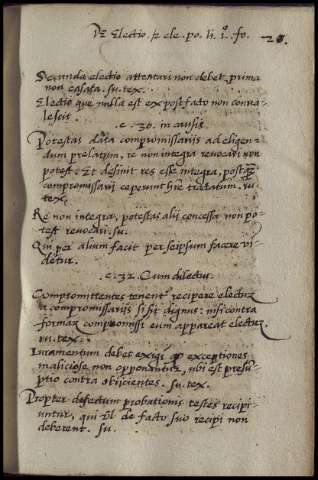 De Electio. & ele. po. li. i.º fo. 20.
Secunda electio attentari non debet, prima
non cassata. su. tex.
Electio que nulla est ex post facto non conva-
lescit.
c. 30. in causis.
Potestas data compromissariis ad eligen-
dum prelatum, re non integra revocari non
potest. Et desinit res esse integra, postqz
compromissarii ceperunt hinc tractatum. su.
tex.
Re non integra, potestas alii concessa non po-
test revocari. su.
Qui per alium facit per seipsum facere vi-
detur.
c. 32. Cum dilectus.
Compromittentes tenent recipere electuz
a compromissariis si sit dignus: nisi contra
formaz compromissi eum appareat electuz.
su. tex.
Iuramentum debet exigi qp exceptiones
maliciose non opponantur, ubi est presu-
ptio contra obiicientes. su. tex.
Propter defectum probationis testes recipi-
untur, qui vl de facto suo recipi non
deberent. su.